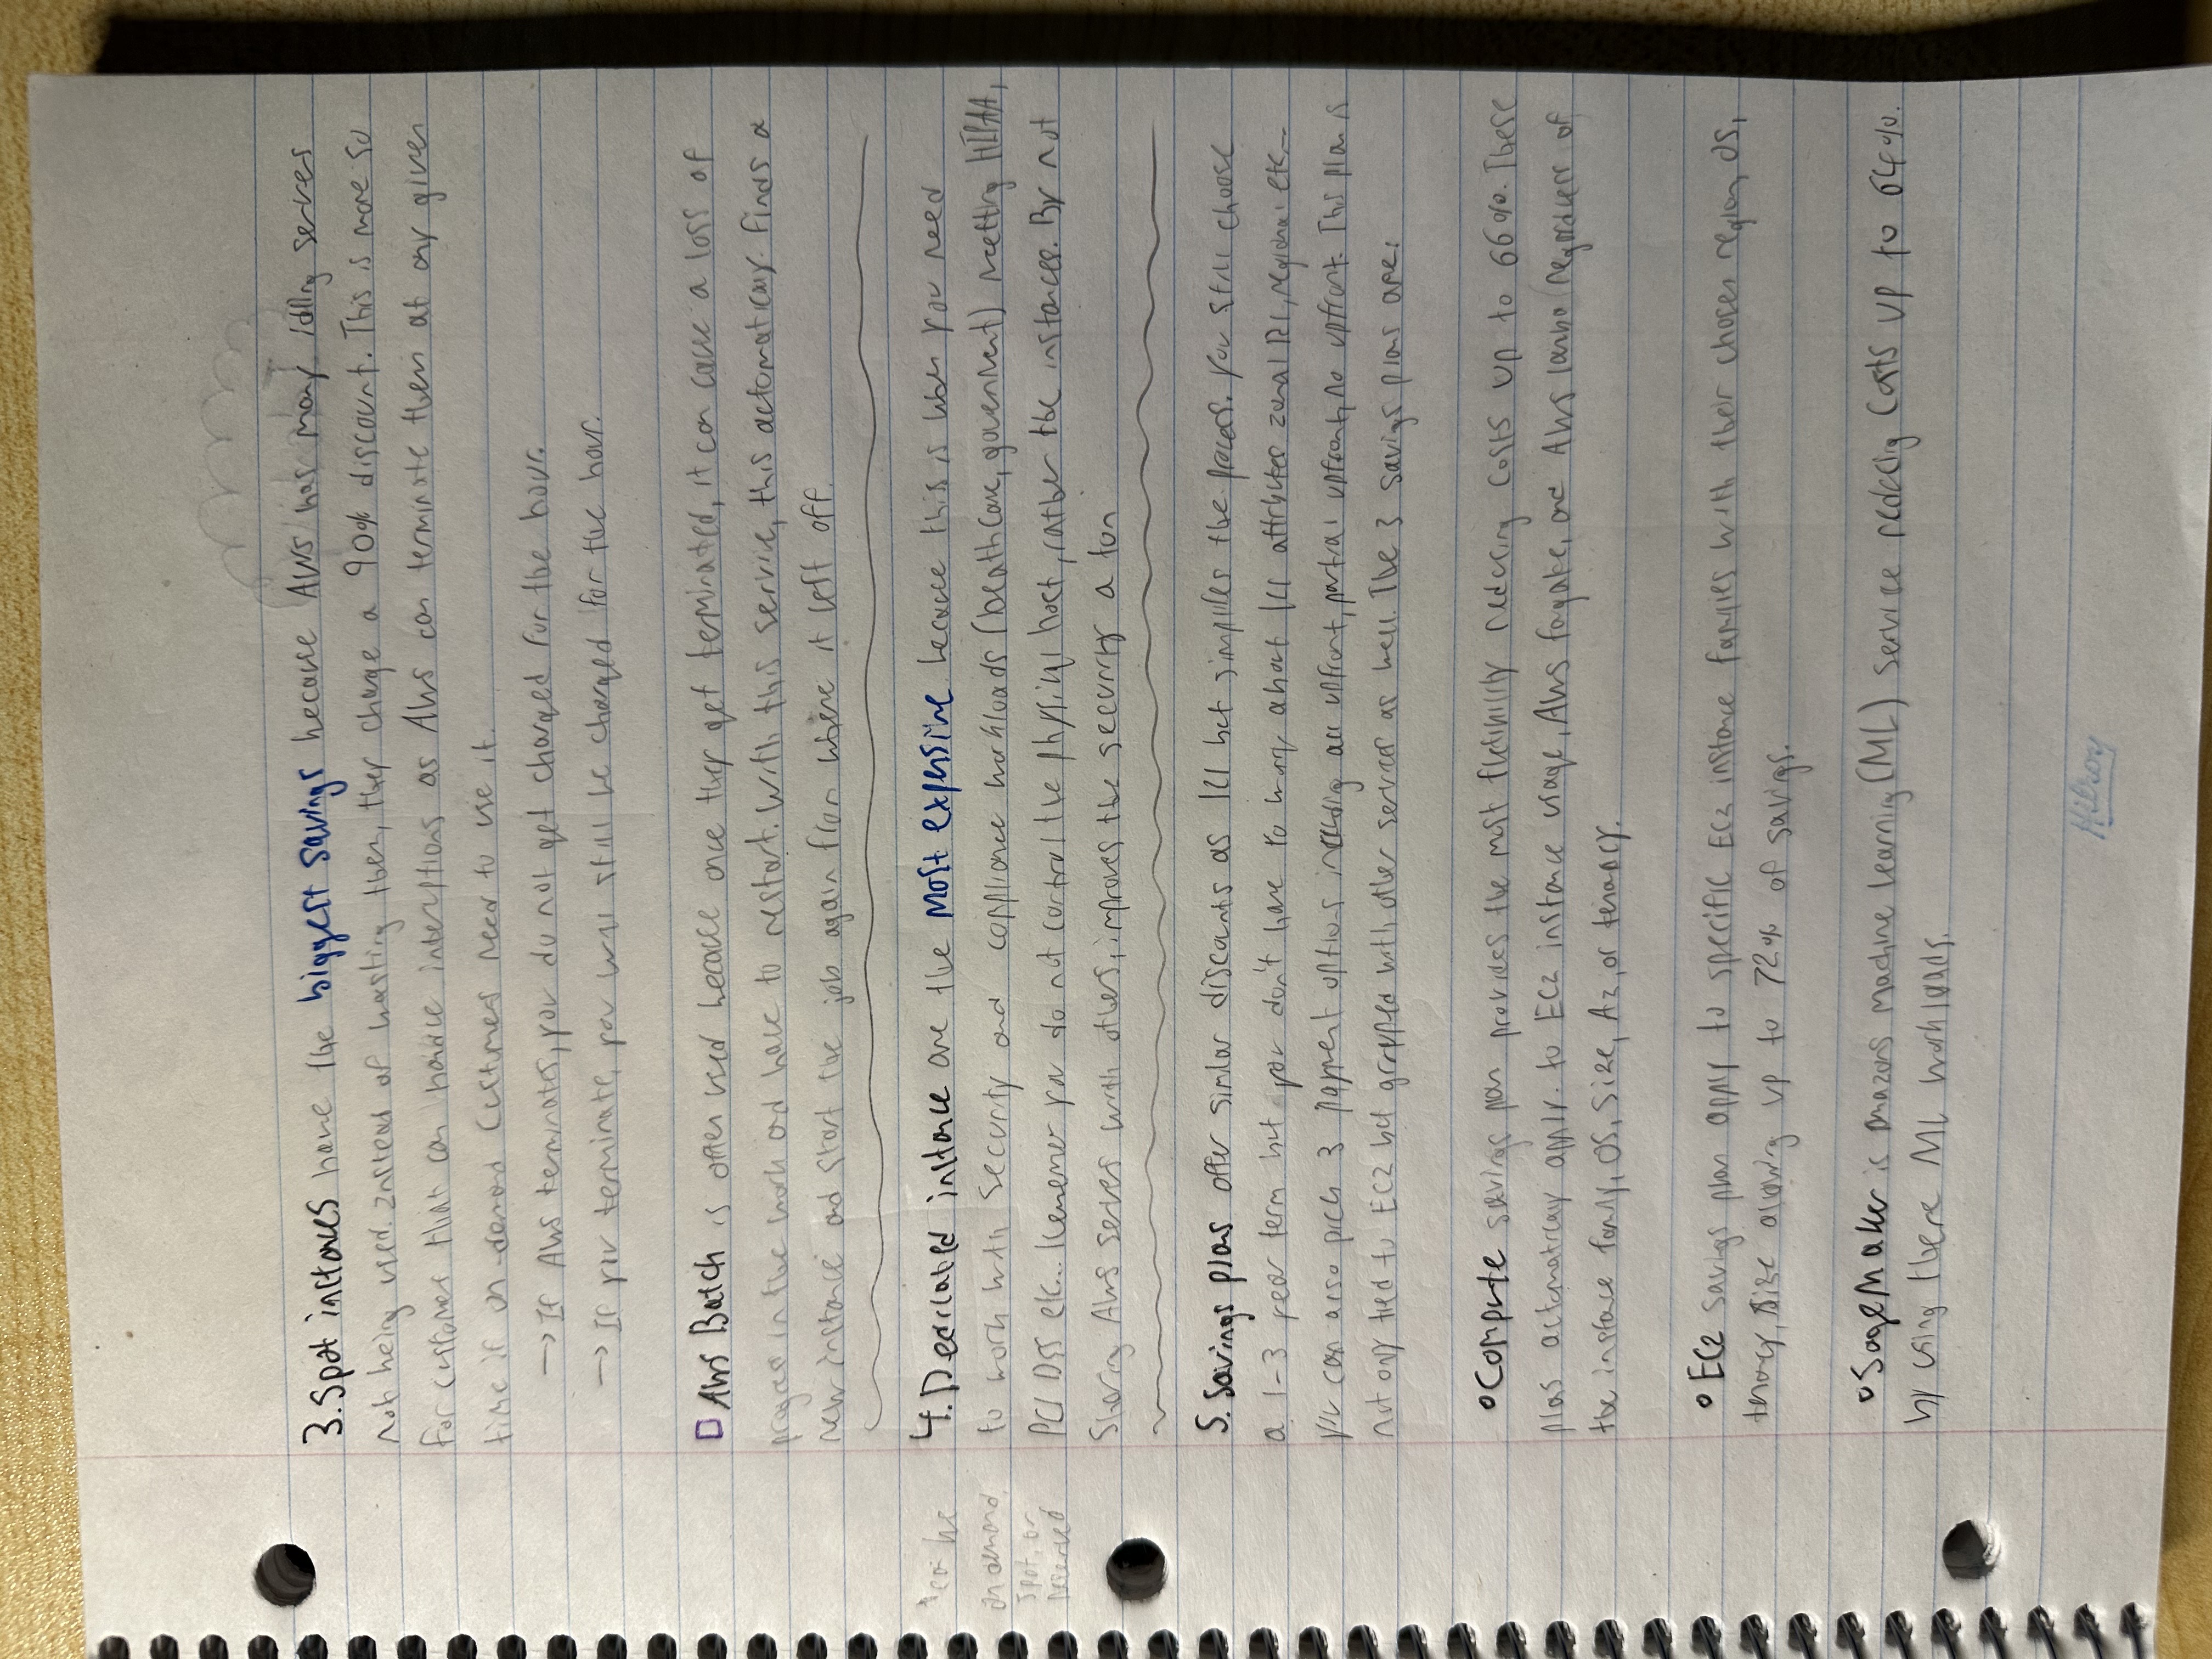 3. Spot instances have the biggest savings because AWS has many idling serves
not being used. Instead of wasting them, they charge a 90% discount. This is more so
for customer that can handle interuptions as AWS can terminate them at any given
time if on-demand customers need to use it.
→ If AWS terminates, you do not get charged for the hour.
→ If you terminate, you will still be charged for the hour.
AWS Batch is often used because once they get terminated, it can cause a loss of
progress in the work and have to restart. With this service, this automatically finds a
new instance and start the job again from where it left off.
4. Dedicated instance are the most expensive because this is when you need
to work with security and compliance workloads (healthcare, government) meeting HIPAA,
PCI DSS etc... Rememer you do not control the physical host, rather the instances. By not
Sharing AWS serves with others, improves the security a ton
*can be
on demand,
spot, or
reserved
5. Savings plans offer similar discounts as RI but simplifies the process. You still choose
a 1-3 year term but you don't have to worry about RI attributes zonal RI, regional etc...
You can also pick 3 payment options including all upfront, partial upfront, no upfront. This plan is
not only tied to EC2 but grouped with other services as well. The 3 savings plans are:
• Compute savings plan provides the most flexibility reducing costs up to 66%. These
plans automatically apply to EC2 instance usage, AWS fargate, and AWS lambda regardless of
the instance family, OS, Size, AZ, or tenancy.
• EC2 savings plan apply to specific EC2 instance families with their chosen region, OS,
tenancy, size allowing up to 72% of savings.
• SageMaker is Amazons Machine Learning (ML) service reducing costs up to 64%.
by using there ML workloads.
Hilroy